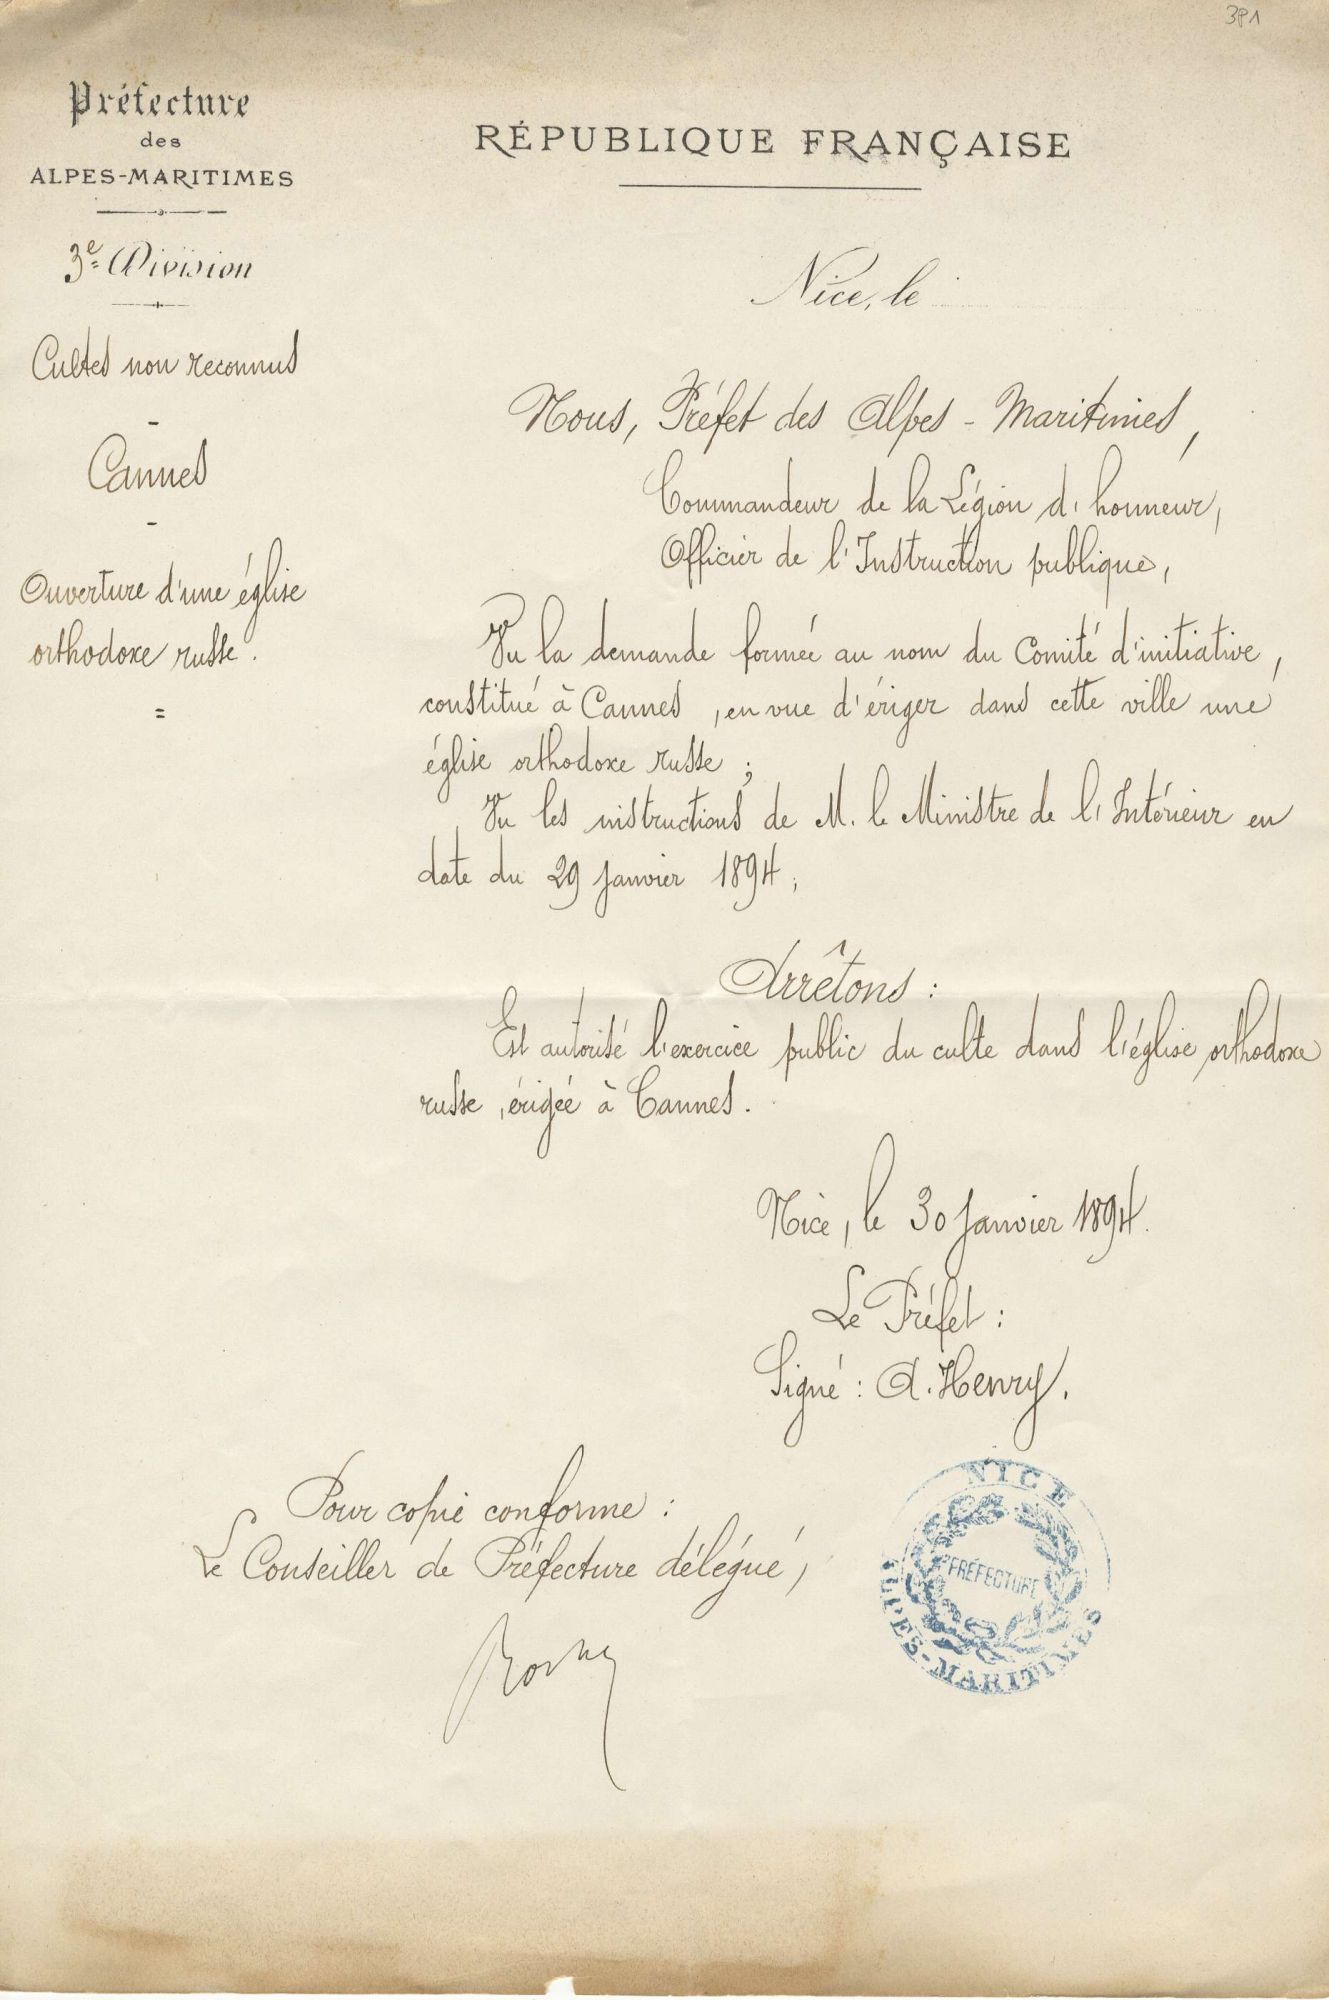 381
Préfecture
des
ALPES-MARITIMES
3e Division
Cultes non reconnus
-
Cannes
-
Ouverture d'une église
orthodoxe russe.
=
RÉPUBLIQUE FRANÇAISE
Nice, le
Nous, Préfet des Alpes-Maritimes,
Commandeur de la Légion d'honneur,
Officier de l'Instruction publique,
Vu la demande formée au nom du Comité d'initiative,
constitué à Cannes, en vue d'ériger dans cette ville une
église orthodoxe russe;
Vu les instructions de M. le Ministre de l'Intérieur en
date du 29 janvier 1894;
Arrêtons:
Est autorisé l'exercice public du culte dans l'église orthodoxe
russe, érigée à Cannes.
Nice, le 30 janvier 1894.
Le Préfet:
Signé: A. Henry.
Pour copie conforme:
Le Conseiller de Préfecture délégué,
NICE
PRÉFECTURE
ALPES-MARITIMES